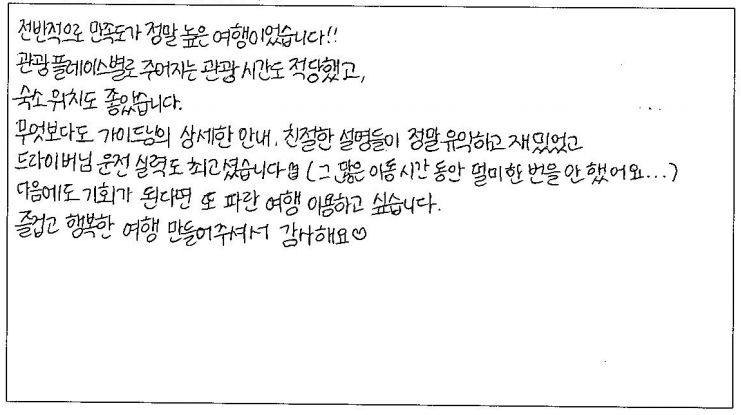 전반적으로 만족도가 정말 높은 여행이었습니다!!
관광 플레이스별로 주어지는 관광 시간도 적당했고,
숙소 위치도 좋았습니다.
무엇보다도 가이드님의 상세한 안내, 친절한 설명들이 정말 유익하고 재밌었고
드라이버님 운전 실력도 최고셨습니다 (그 많은 이동시간 동안 멀미 한 번을 안 했어요...)
다음에도 기회가 된다면 또 파란 여행 이용하고 싶습니다.
즐겁고 행복한 여행 만들어주셔서 감사해요♡